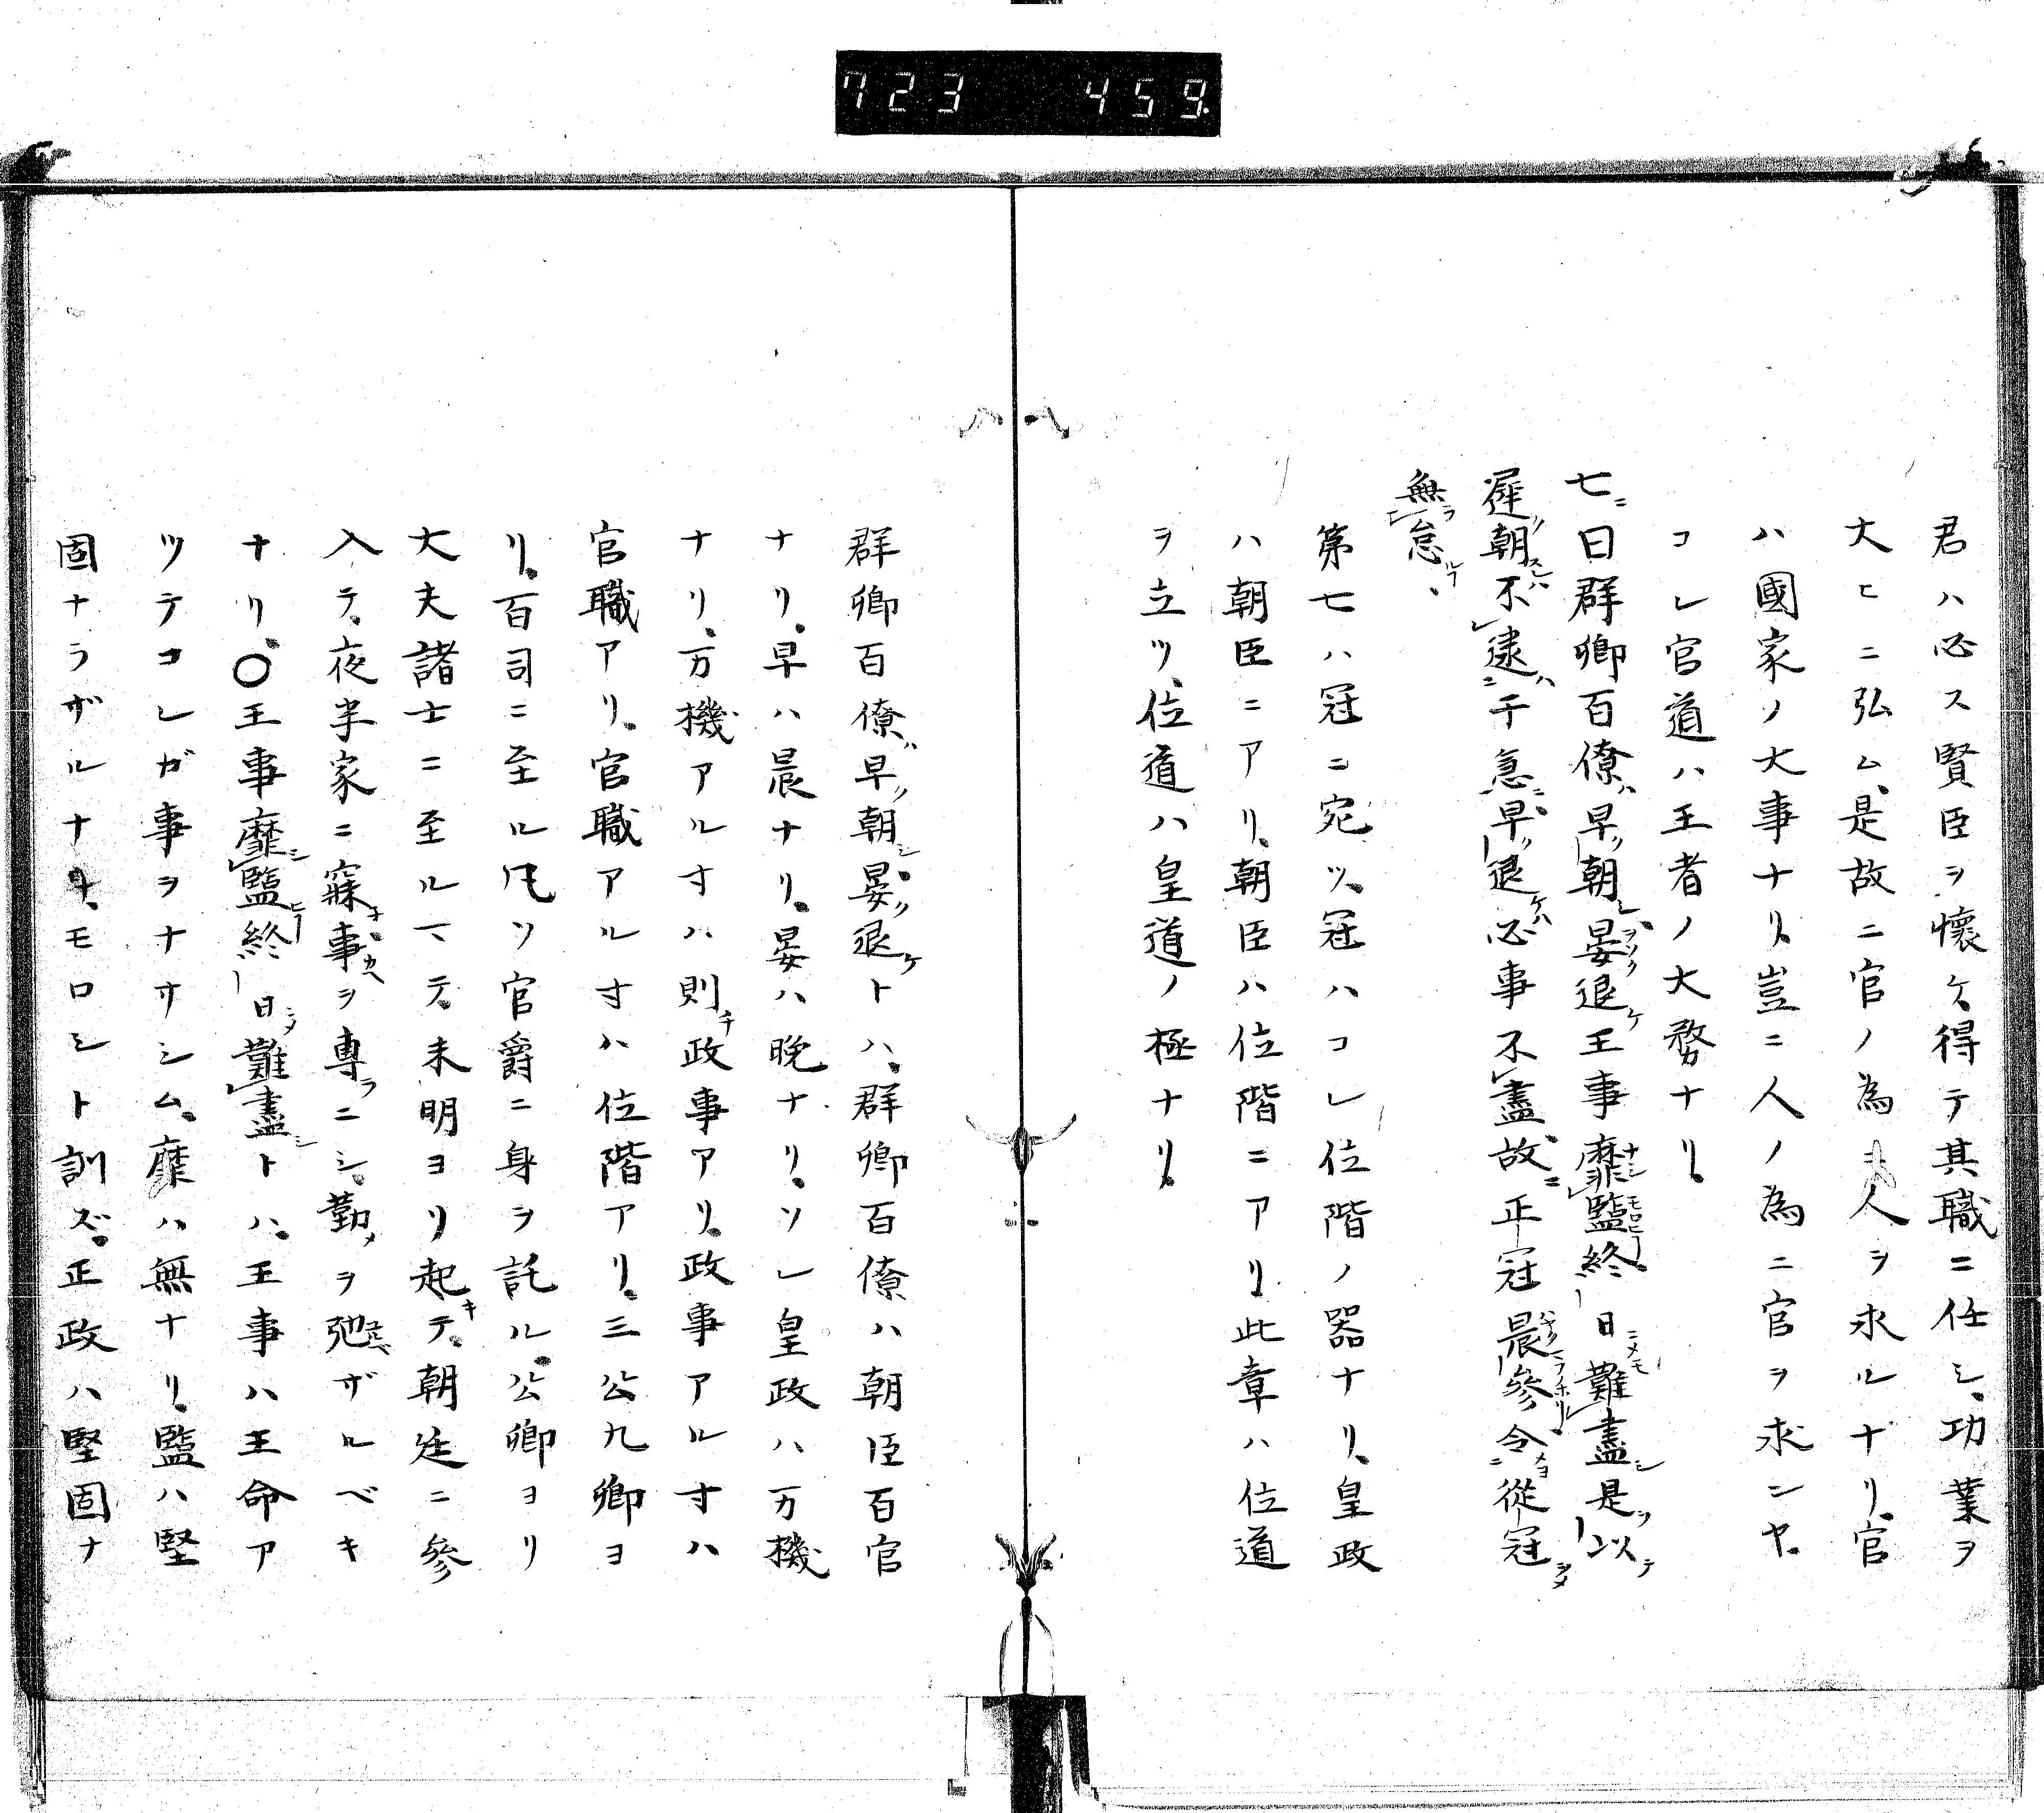 723 459
君ハ必ス賢臣ヲ懷ケ得テ其職ニ任シ、功業ヲ
大ヒニ弘ム、是故ニ官ノ為人ヲ求ルナリ、官
ハ國家ノ大事ナリ、豈ニ人ノ為ニ官ヲ求ンヤ、
コレ官道ハ王者ノ大務ナリ、
七ニ曰群卿百僚ハ早ク朝シ、晏ヲソク退ケ王事靡ナシ盬モロヒー終日ニメモ難盡シ是ヲ以テ
遲ク朝スレハ不逮ハニ于急ニ、早ク退ケハ必事不盡、故ニ正冠晨參令從冠ヲメ
無ラ怠ルヿ、
第七ハ冠ニ宛ツ、冠ハコレ位階ノ器ナリ、皇政
ハ朝臣ニアリ、朝臣ハ位階ニアリ、此章ハ位道
ヲ立ツ、位道ハ皇道ノ極ナリ、
群卿百僚ハ早ク朝シ、晏ク退ケトハ、群卿百僚ハ朝臣百官
ナリ、早ハ晨ナリ、晏ハ晚ナリ、ソレ皇政ハ万機
ナリ、万機アル寸ハ則チ政事アリ、政事アル寸ハ
官職アリ、官職アル寸ハ位階アリ、三公九卿ヨ
リ、百司ニ至ル、凡ソ官爵ニ身ヲ託ル、公卿ヨリ
大夫諸士ニ至ルマテ、未明ヨリ起キテ、朝廷ニ參
入テ、夜半家ニ寐子、事カヘヲ專ラニシ、勤メヲ弛ユルベザルベキ
ナリ、〇王事靡シ盬ヒー終日ニメ難盡シトハ、王事ハ王命ア
ツテコレガ事ヲナサシム、靡ハ無ナリ、盬ハ堅
固ナラザルナリ、モロシト訓ズ、正政ハ堅固ナ